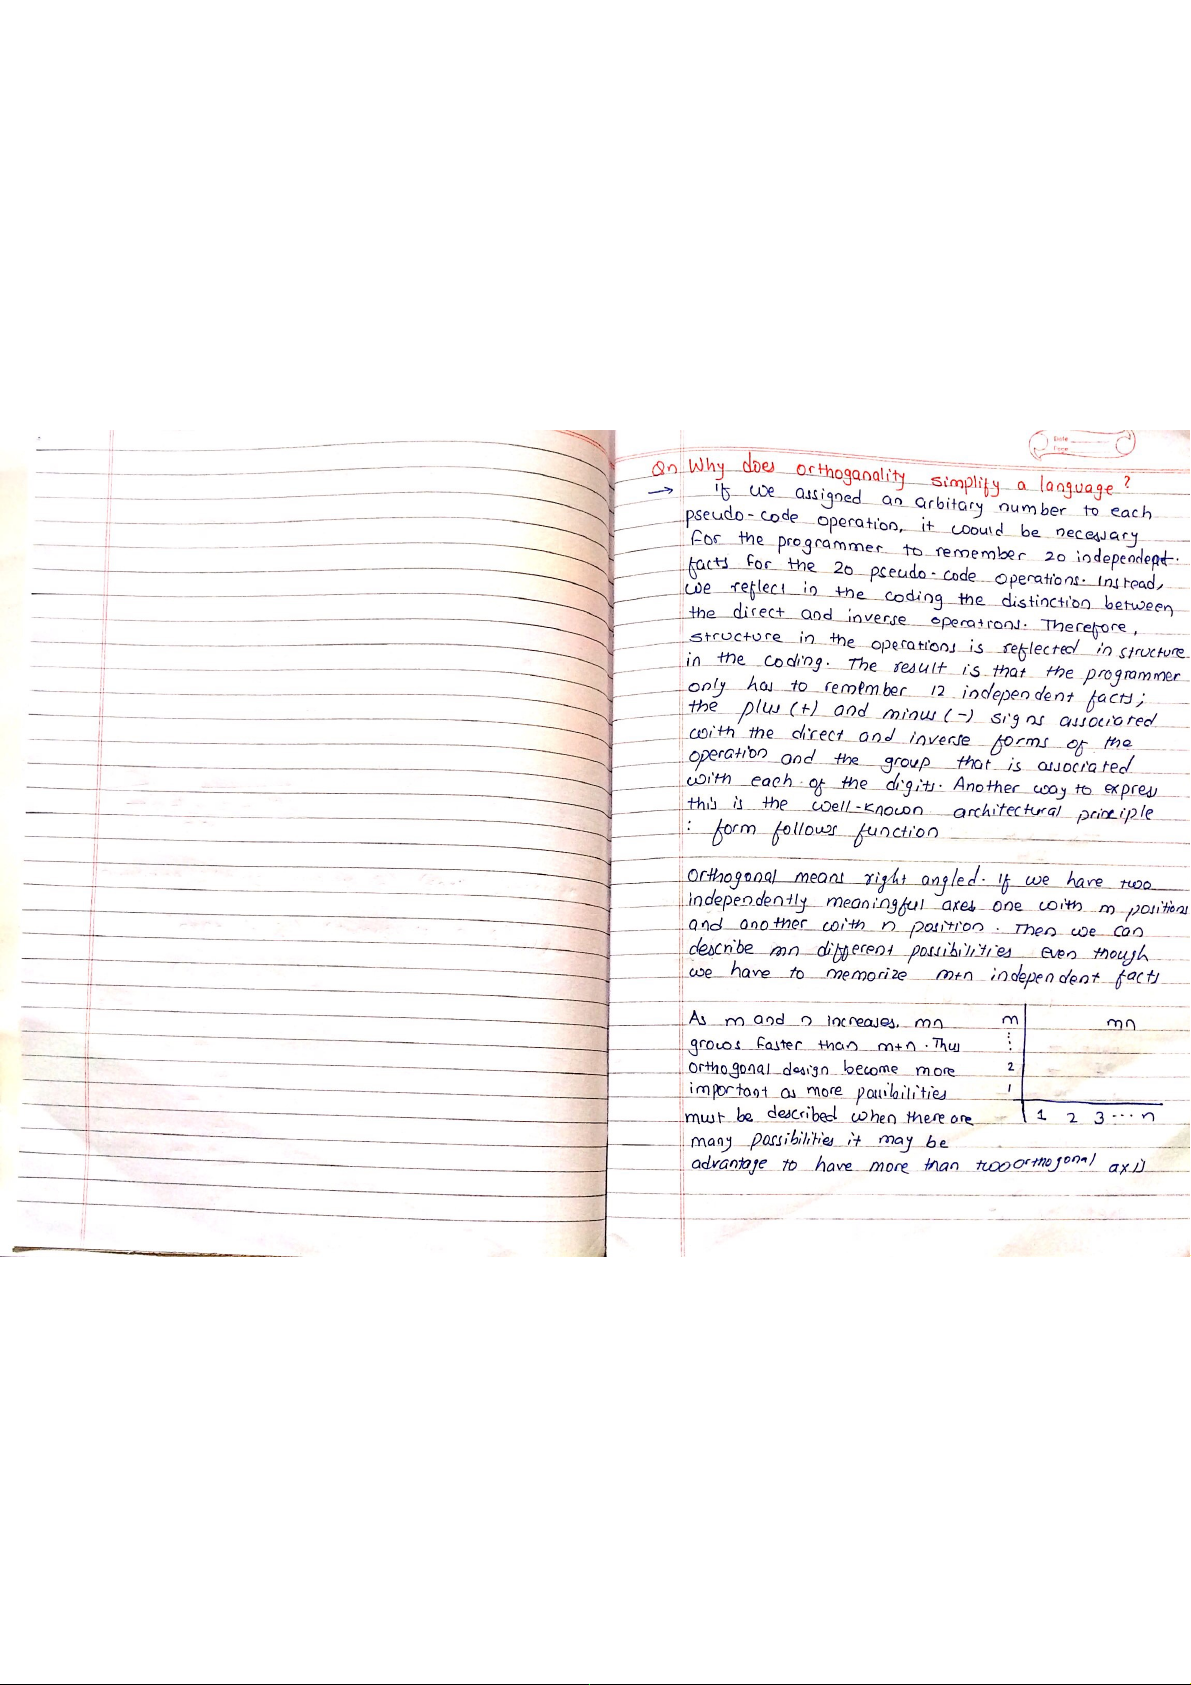 Date
Page
Qn Why does orthoganality simplify a language?
→ If we assigned an arbitary number to each
pseudo-code operation, it would be necessary
for the programmer to remember 20 independent.
facts for the 20 pseudo-code operations. Instead,
we reflect in the coding the distinction between
the direct and inverse operations. Therefore,
structure in the operations is reflected in structure
in the coding. The result is that the programmer
only has to remember 12 independent facts;
the plus (+) and minus (-) signs associated
with the direct and inverse forms of the
operation and the group that is associated
with each of the digits. Another way to express
this is the well-known architectural principle
: form follows function
Orthogonal means right angled. If we have two
independently meaningful axes one with m positions
and another with n position. Then we can
describe mn different possibilities even though
we have to memorize m+n independent facts
As m and n increases, mn
grows faster than m+n. Thus
orthogonal design become more
important as more possibilities
must be described when there are
many possibilities it may be
advantage to have more than two orthogonal axis
m mn
⋮
2
1
1 2 3 ... n